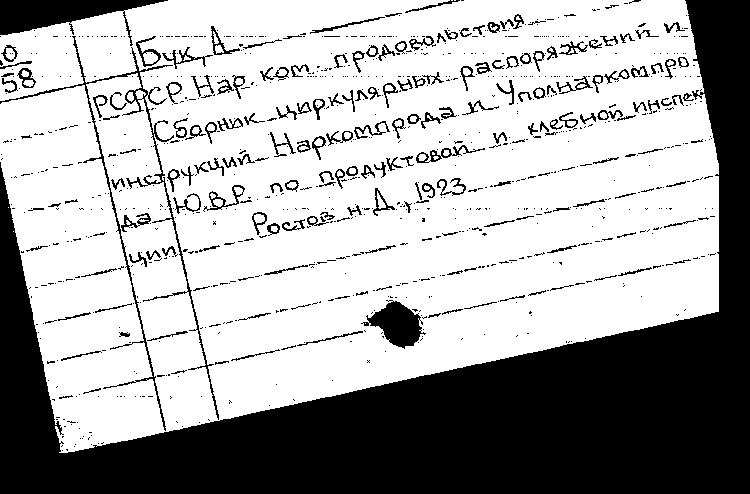 10
58
Бук, А.
РСФСР Нар. ком. продовольствия
Сборник циркулярных распоряжений и
инструкций Наркомпрода и Уполнаркомпро-
да Ю.В.Р. по продуктовой и хлебной инспек-
ции. Ростов н-Д., 1923